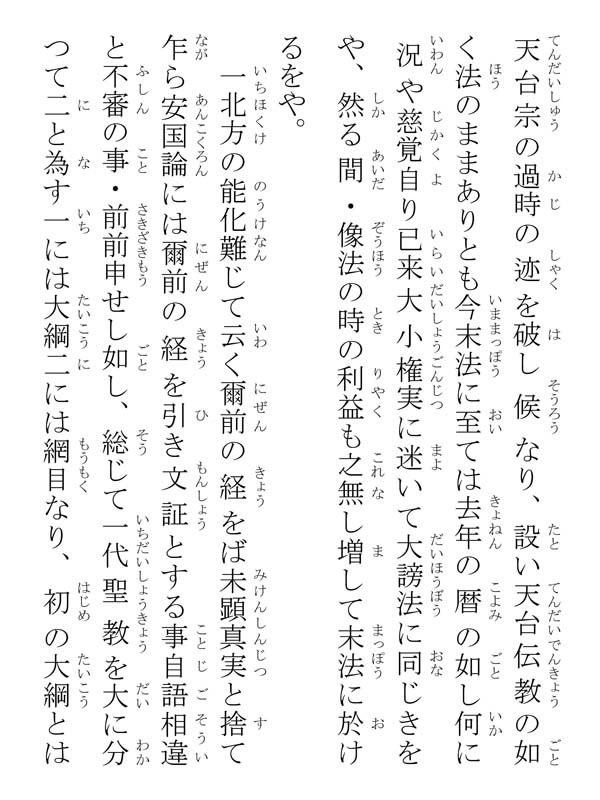 天台宗の過時の迹を破し候なり、設い天台伝教の如
く法のままありとも今末法に至ては去年の暦の如し何に
況や慈覚自り已来大小権実に迷いて大謗法に同じきを
や、然る間・像法の時の利益も之無し増して末法に於け
るをや。
一北方の能化難じて云く爾前の経をば未顕真実と捨て
乍ら安国論には爾前の経を引き文証とする事自語相違
と不審の事・前前申せし如し、総じて一代聖教を大に分
つて二と為す一には大綱二には網目なり、初の大綱とは